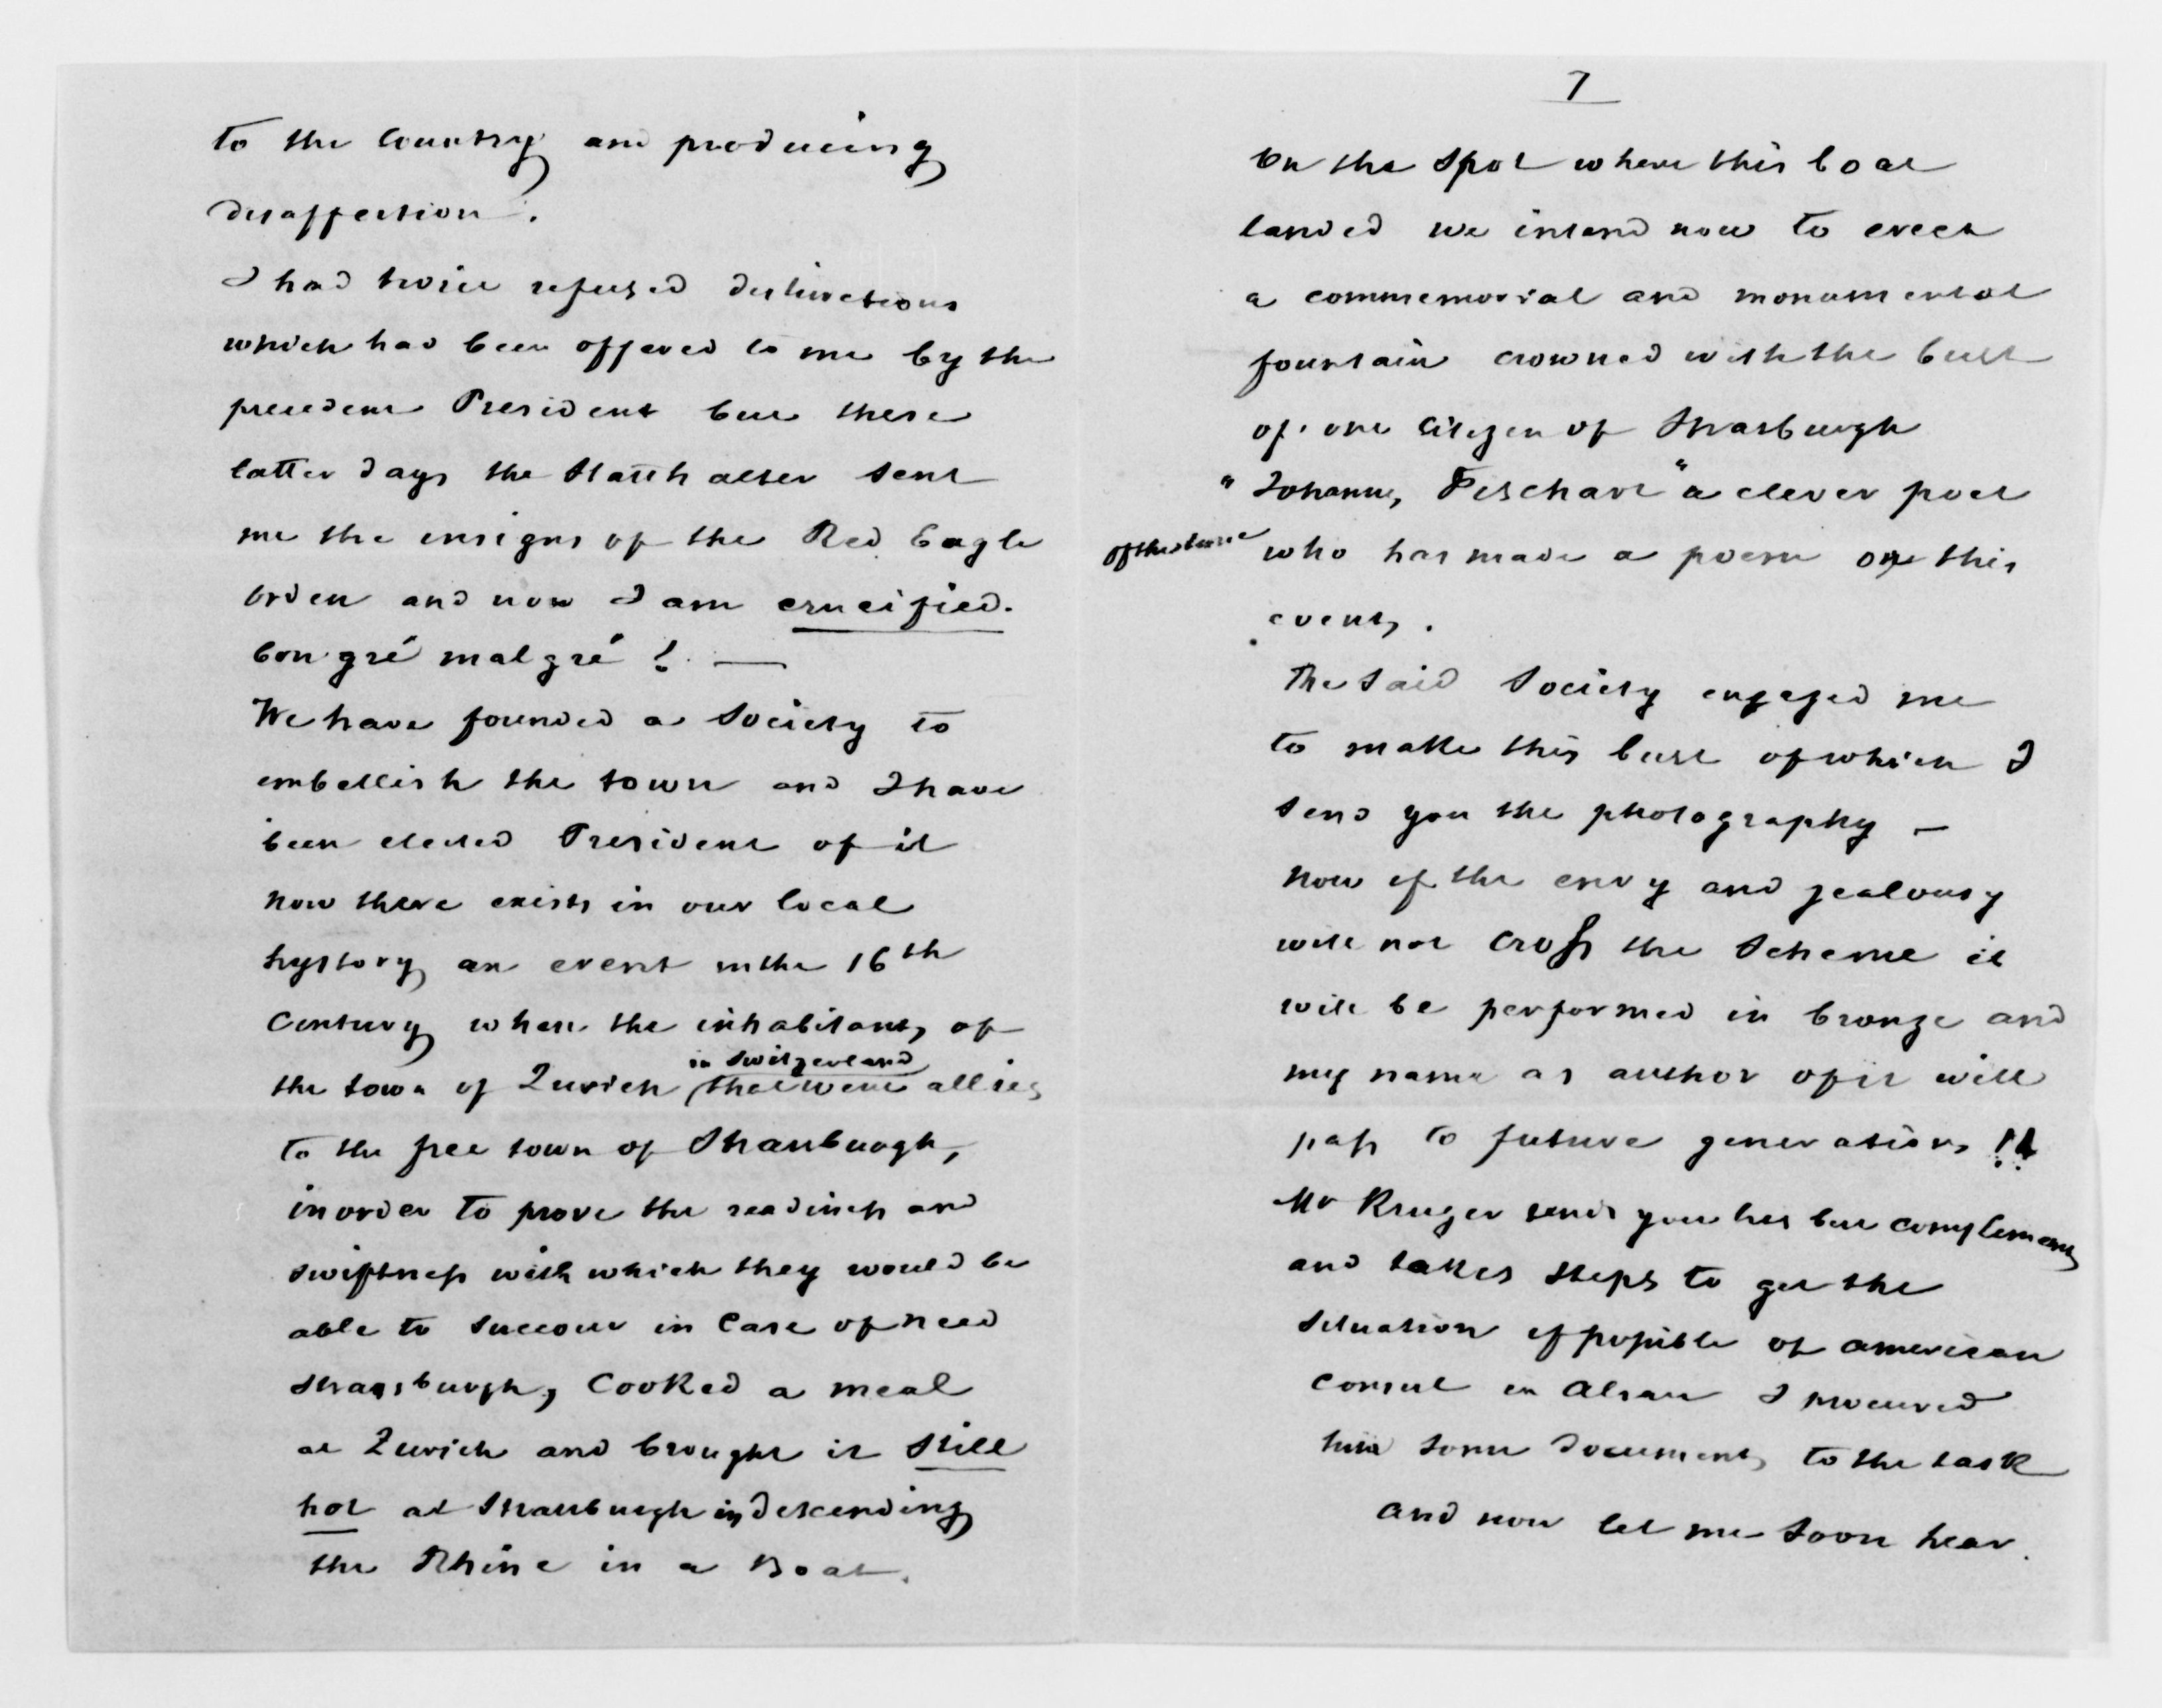 to the Country and producing
disaffection.
I had twice refused distinctions
which had been offered to me by the
precedent President but these
latter days the Statthalter sent
me the ensigns of the Red Eagle
orden and now I am crucified.
bon gré malgré ! —
We have founded a Society to
embellish the town and I have
been elected President of it
now there exists in our local
hystory an event in the 16th
Century when the inhabitants of
in Switzerland
the town of Zurich (that were allies
to the free town of Strasburgh,
in order to prove the readiness and
swiftness with which they would be
able to succour in Case of need
Strassburgh, Cooked a meal
at Zurich and brought it still
hot at Strasburgh in descending
the Rhine in a Boat.
7
On the spot where this boat
landed we intend now to erect
a commemorial and monumental
fountain crowned with the bust
of one Citizen of Strasburgh
"Johann, Fischart" a clever poet
of the time who has made a poem on this
event.
The said Society engaged me
to make this bust of which I
send you the photography —
now if the envy and jealousy
will not cross the Scheme it
will be performed in bronze and
my name as author of it will
pass to future generations !!
Mr Kruger sends you his best compliments
and takes steps to get the
situation if possible of american
consul in Alsace I procured
him some documents to the task
and now let me soon hear.